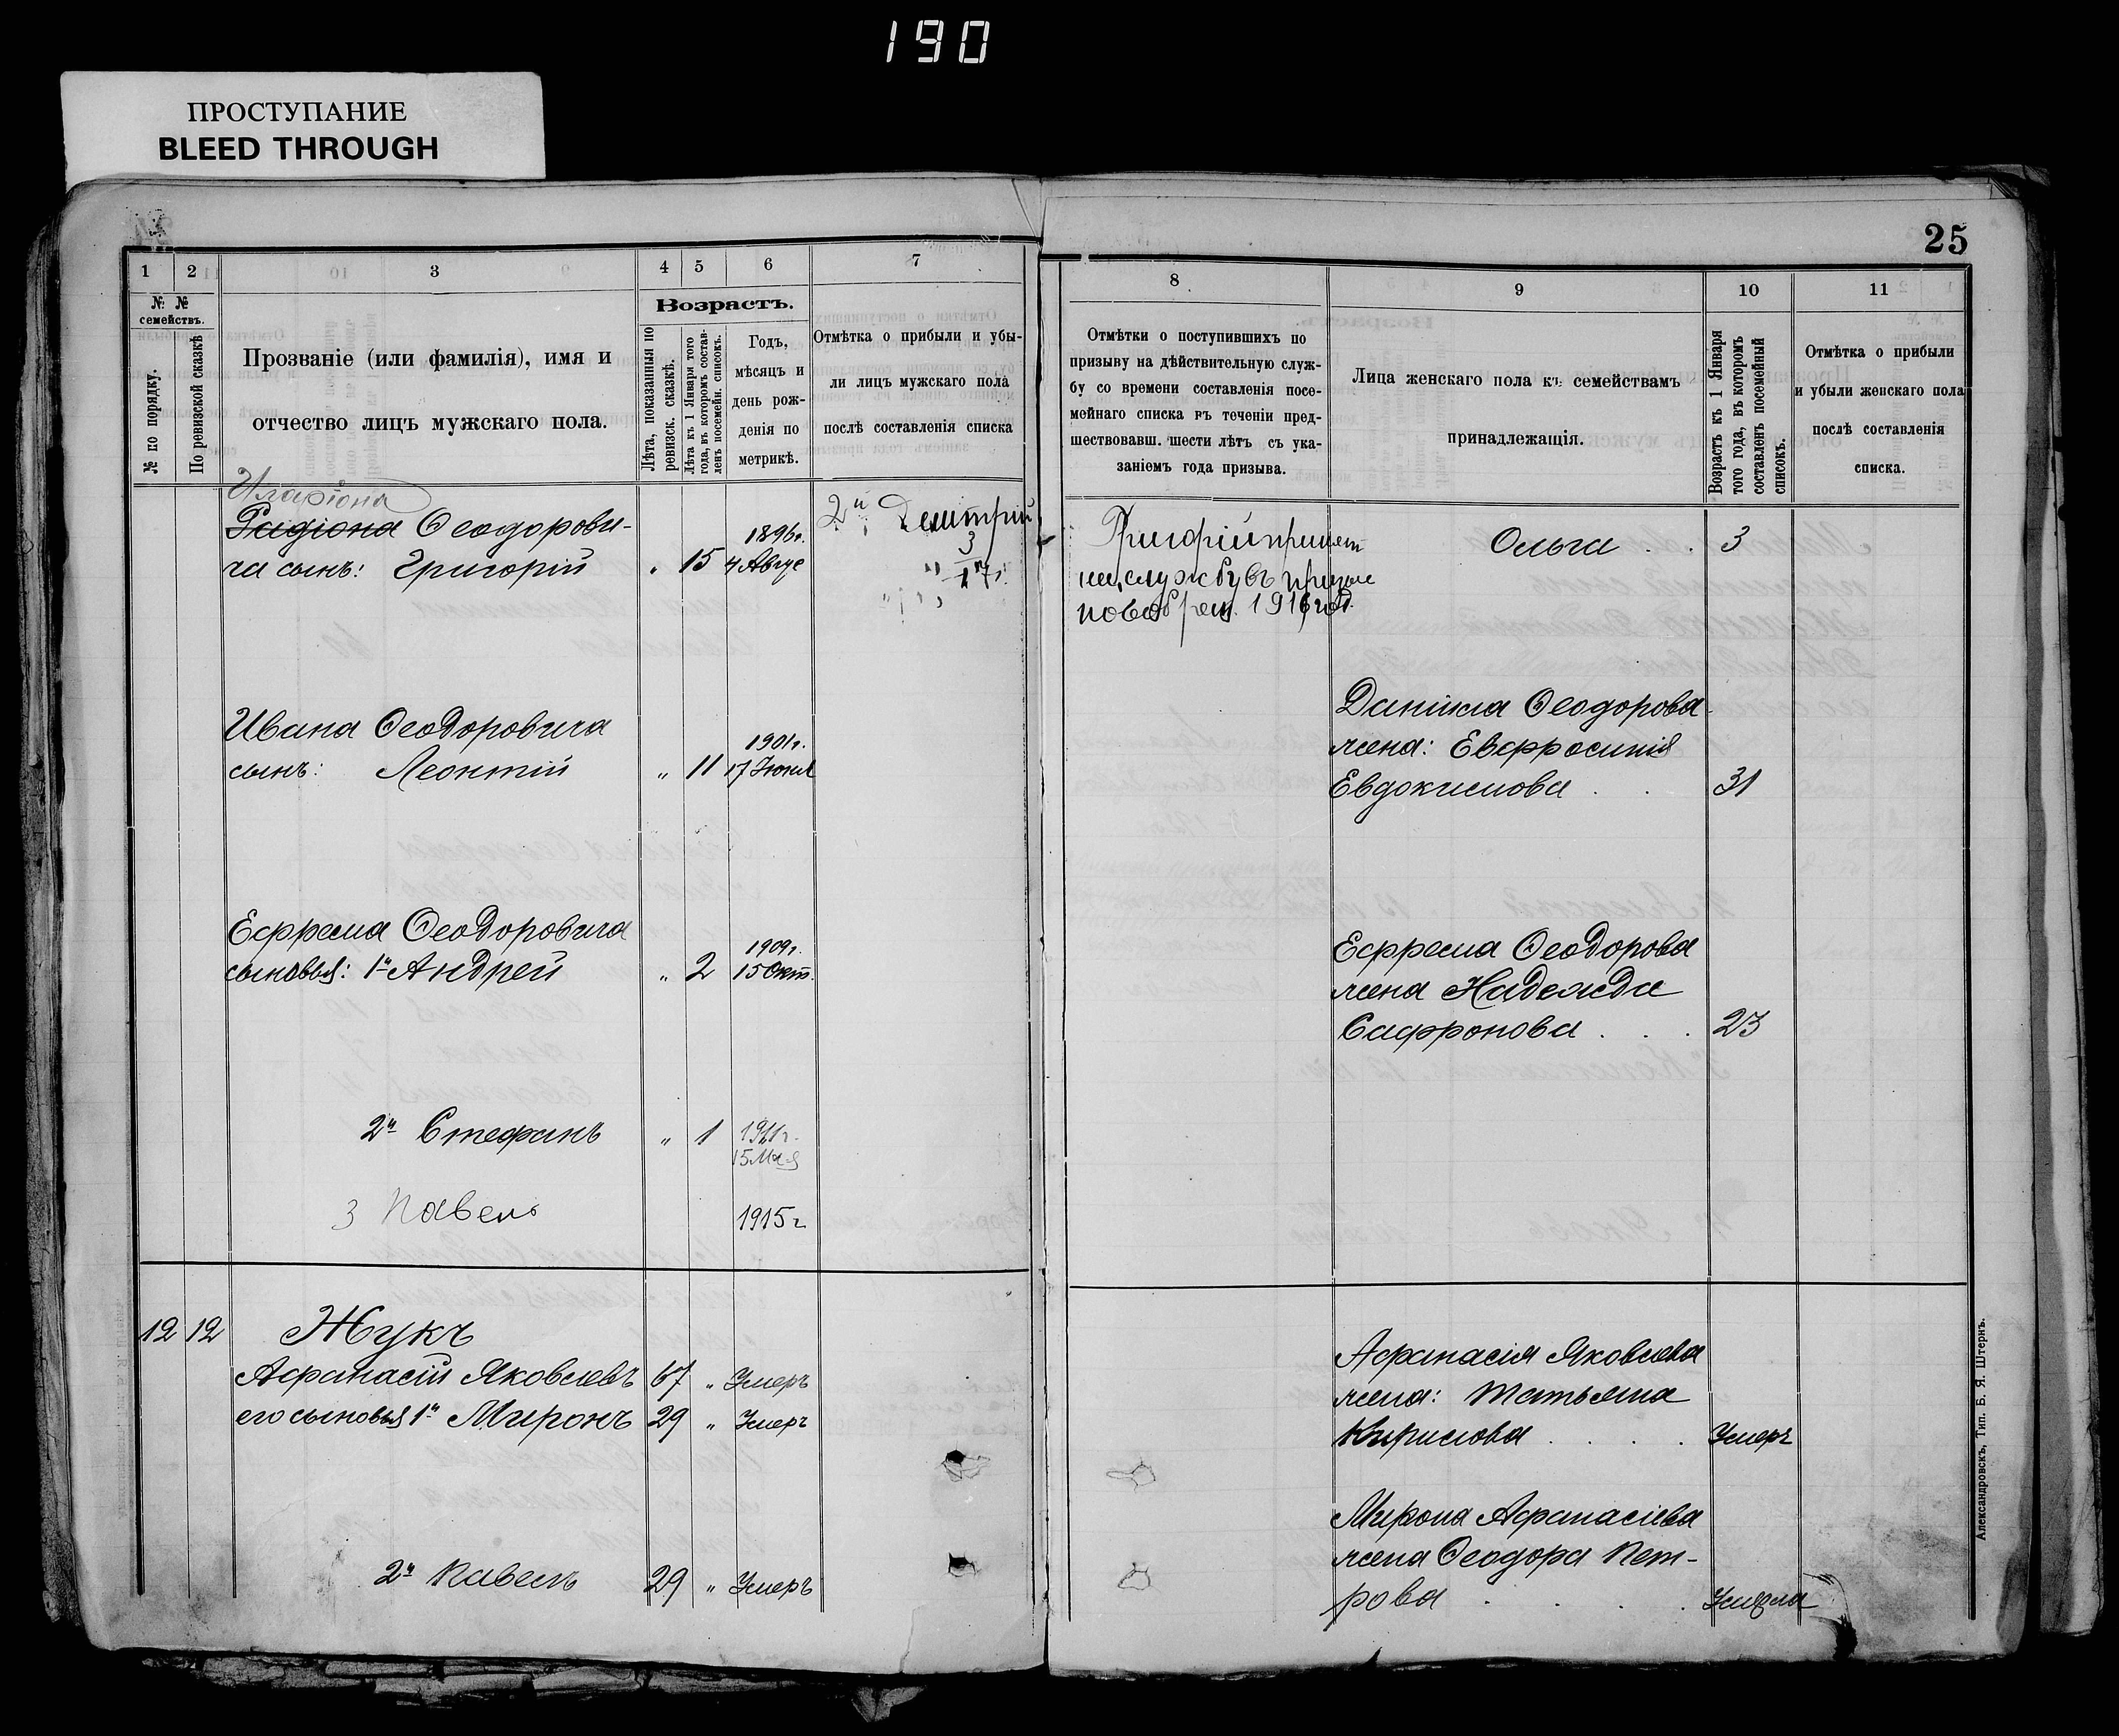 190
ПРОСТУПАНИЕ
BLEED THROUGH
25
1 2 3 4 5 6 7
№ № семействъ.
№ по порядку.
По ревизской сказкѣ
Прозваніе (или фамилія), имя и
отчество лицъ мужскаго пола.
Возрастъ.
Лѣта, показанныя по
ревизск. сказкѣ.
Лѣта къ 1 Января того
года, въ которомъ состав-
ленъ посемейн. списокъ.
Годъ,
мѣсяцъ и
день рож-
денія по
метрикѣ.
Отмѣтка о прибыли и убы-
ли лицъ мужскаго пола
послѣ составленія списка
Иларіона
Родіона Ѳеодорови-
ча сынъ: Григорій „ 15 1896г. 4 Авгус
2й Дмитрій
3
17г.
Ивана Ѳеодоровича
сынъ: Леонтій „ 11 1901г. 17 Іюня
Ефрема Ѳеодоровича
сыновья: 1й Андрей „ 2 1909г. 15 Окт.
2й Стефанъ „ 1 1911г.
15 Мая
3 Павелъ 1915г
12 12 Жукъ
Афанасій Яковлевъ 67 „ Умеръ
его сыновья 1й Миронъ 29 „ Умеръ
2й Павелъ 29 „ Умеръ
8 9 10 11
Отмѣтки о поступившихъ по
призыву на дѣйствительную служ-
бу со времени составленія посе-
мейнаго списка въ теченіи пред-
шествовавш. шести лѣтъ съ ука-
заніемъ года призыва.
Лица женскаго пола къ семействамъ
принадлежащія.
Возрастъ къ 1 Января
того года, въ которомъ
составленъ посемейный
списокъ.
Отмѣтка о прибыли
и убыли женскаго пола
послѣ составленія
списка.
Григорій принят
на службу въ призыве
новобран. 1916 год.
Ольга . . 3
Даніила Ѳеодорова
жена: Евфросинія
Евдокимова . . 31
Ефрема Ѳеодорова
жена Надежда
Сафронова . . . 23
Афанасія Яковлева
жена: Татьяна
Кирилова . . . . Умерг
Мирона Афанасіева
жена Ѳеодора Пет-
рова . . . . Умерла
Александровскъ, Тип. Б. Я. Штернъ.